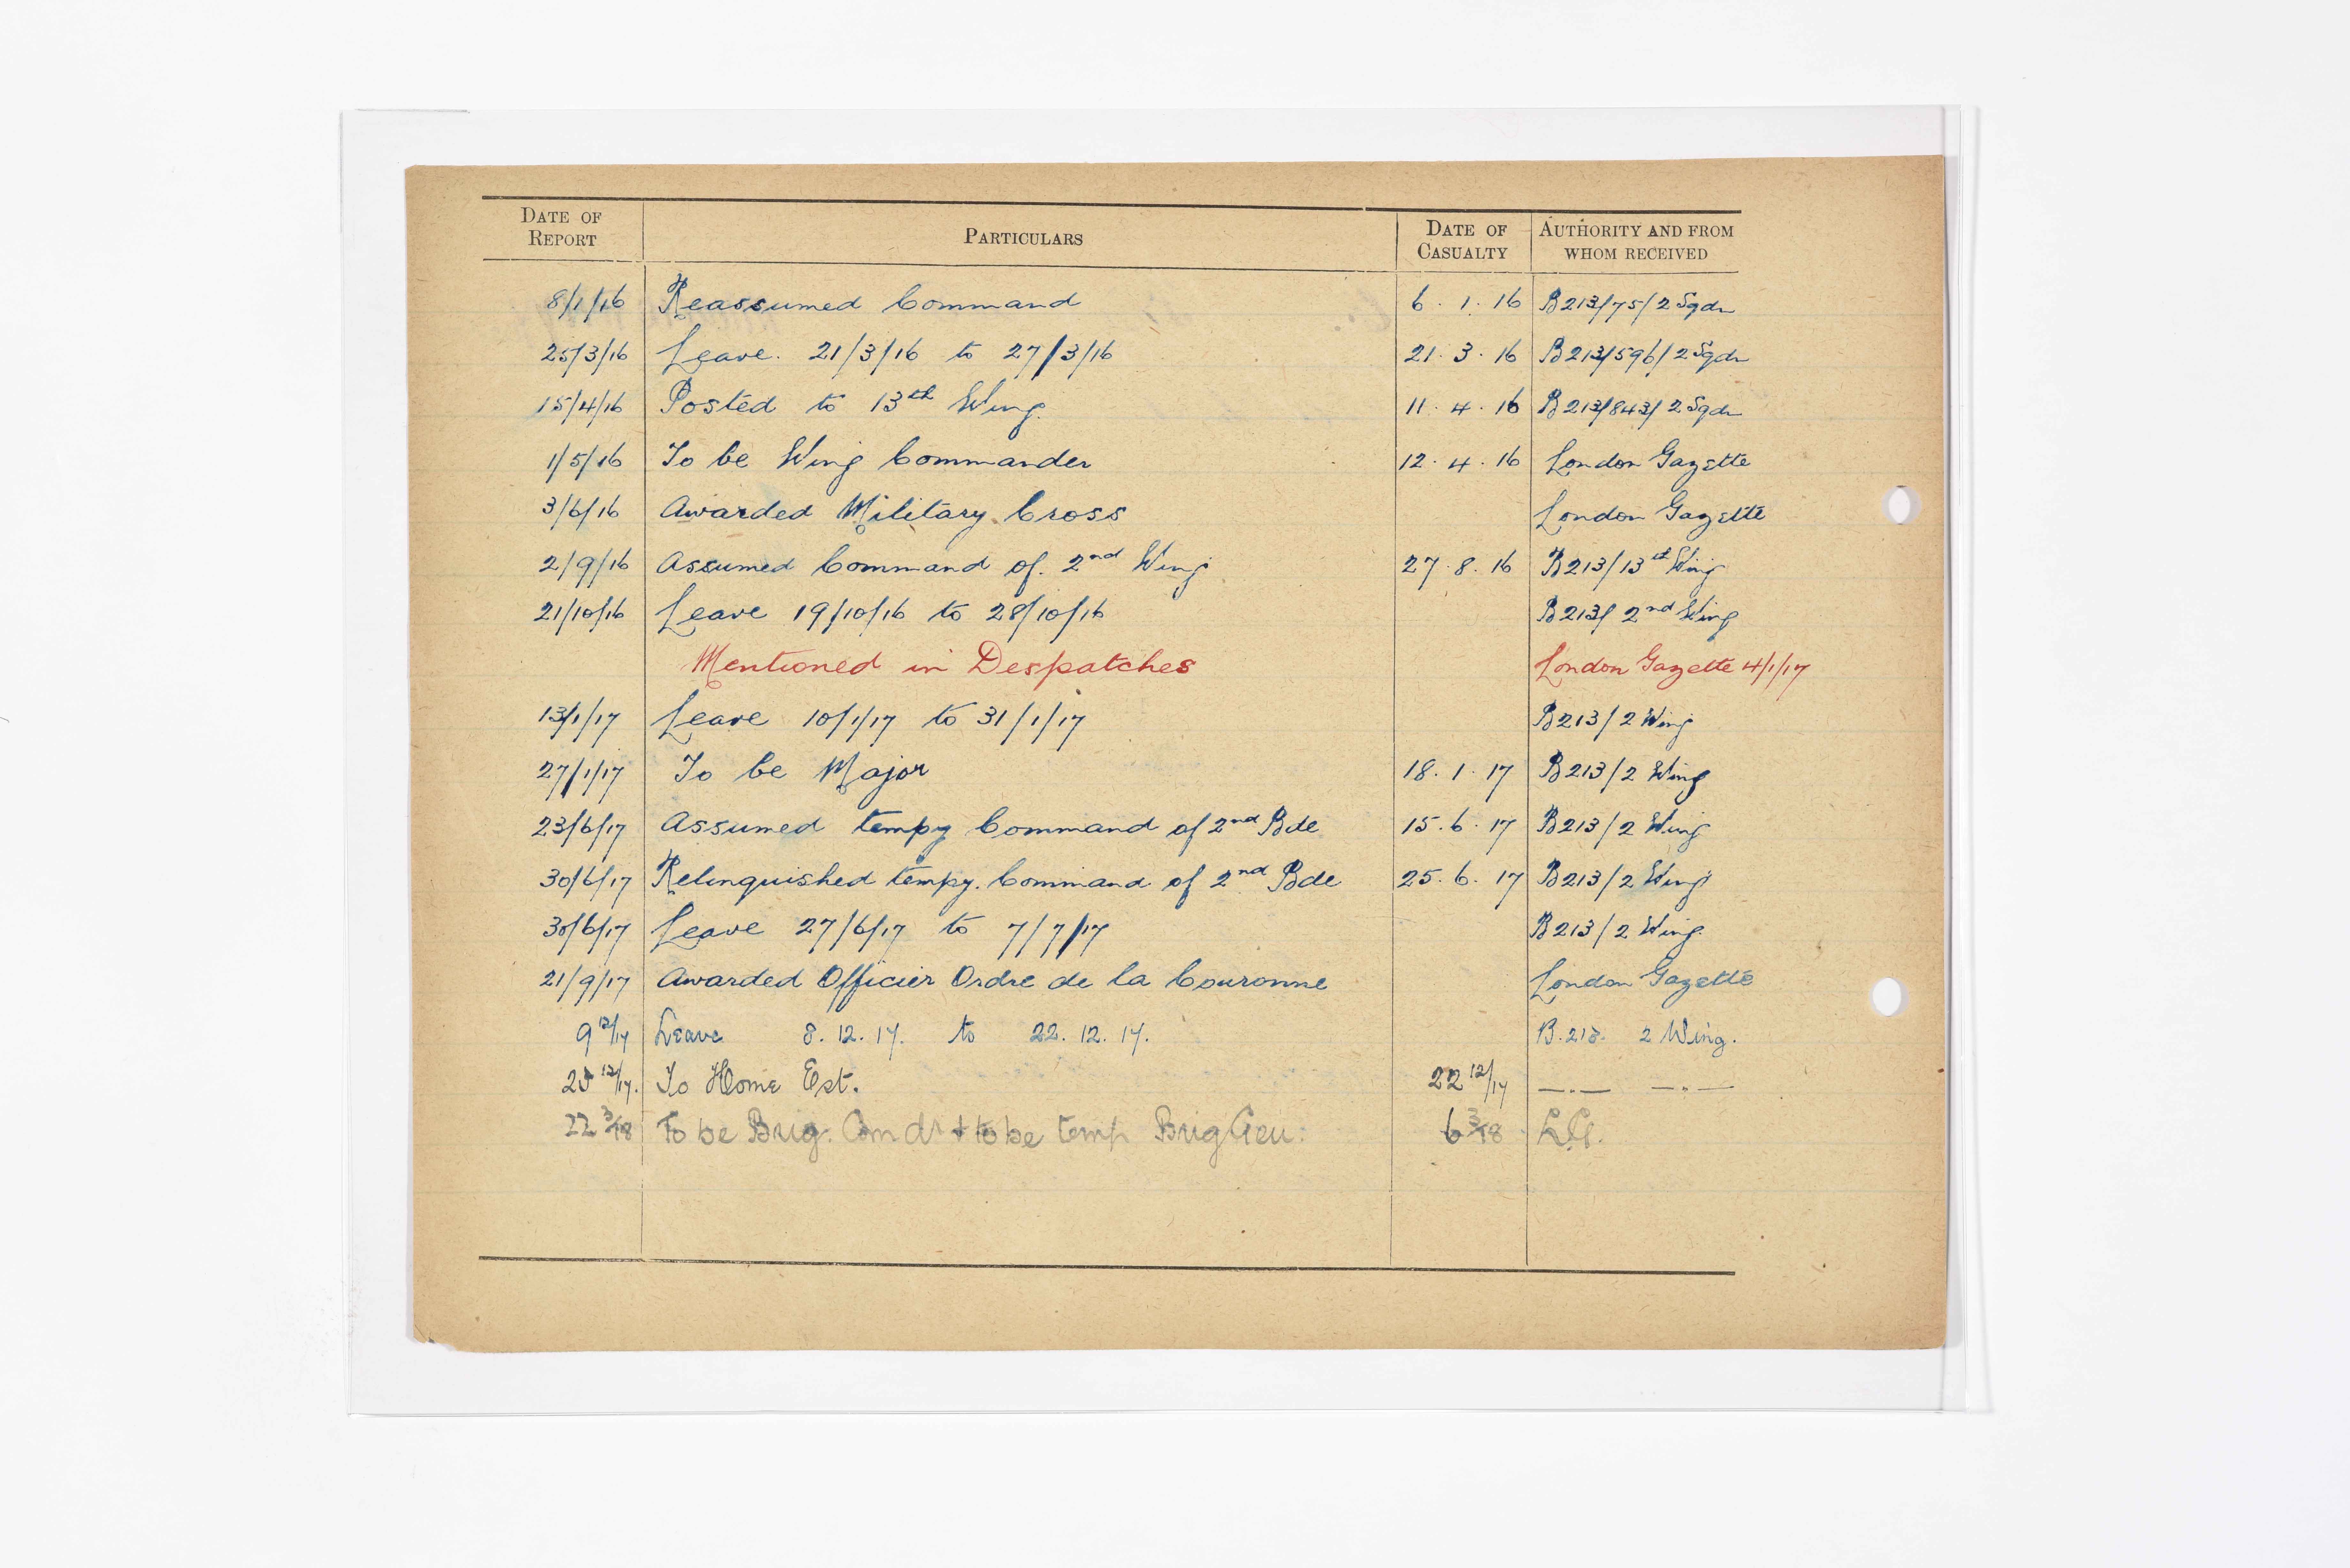 DATE OF REPORT PARTICULARS DATE OF CASUALTY AUTHORITY AND FROM WHOM RECEIVED
8/1/16 Reassumed Command 6. 1. 16 B213/75/2 Sqdn
25/3/16 Leave. 21/3/16 to 27/3/16 21. 3. 16 B213/596/2 Sqdn
15/4/16 Posted to 13th Wing. 11. 4. 16 B213/843/2 Sqdn
1/5/16 To be Wing Commander 12. 4. 16 London Gazette
3/6/16 Awarded Military Cross London Gazette
2/9/16 Assumed Command of. 2nd Wing 27. 8. 16 B213/13th Wing
21/10/16 Leave 19/10/16 to 28/10/16 B213/2nd Wing
Mentioned in Despatches London Gazette 4/1/17
13/1/17 Leave 10/1/17 to 31/1/17 B213/2 Wing
27/1/17 To be Major 18. 1. 17 B213/2 Wing
23/6/17 Assumed tempy Command of 2nd Bde 15. 6. 17 B213/2 Wing
30/6/17 Relinquished tempy. Command of 2nd Bde 25. 6. 17 B213/2 Wing
30/6/17 Leave 27/6/17 to 7/7/17 B213/2 Wing.
21/9/17 Awarded Officier Ordre de la Couronne London Gazette
9 12/17 Leave 8. 12. 17. to 22. 12. 17. B.213. 2 Wing.
12/17. To Home Est. 22 12/17 —.— —.—
22 3/18 To be Brig. Comdr + to be temp Brig Gen: 6 3/18 L.G.